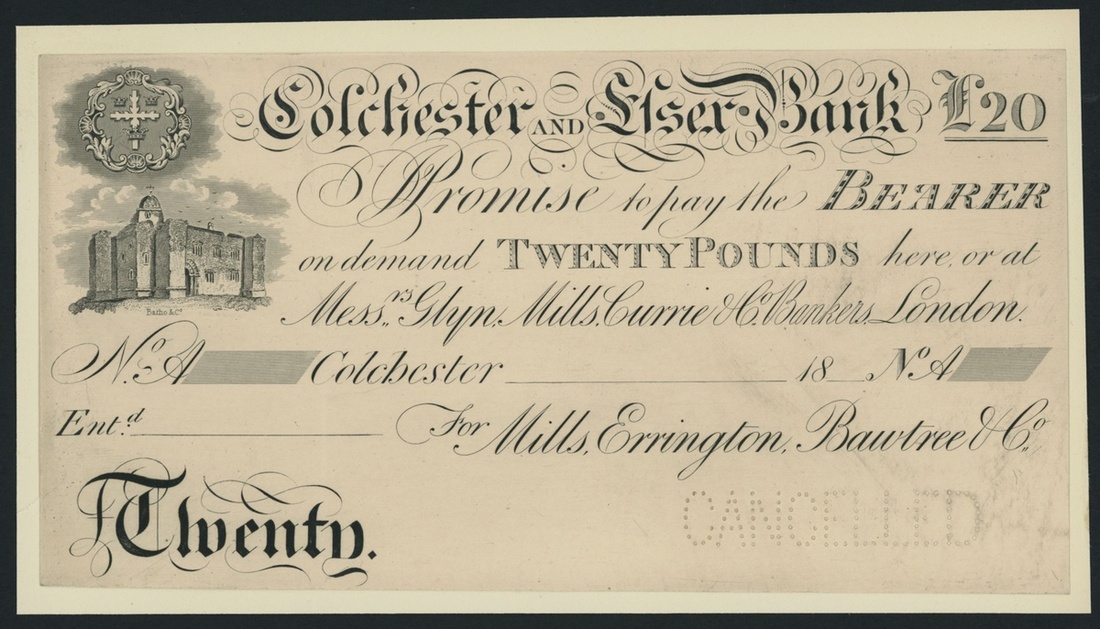 Colchester AND Essex Bank £20
I Promise to pay the BEARER
on demand TWENTY POUNDS here, or at
Messrs Glyn, Mills, Currie & Co. Bankers, London.
Batho & Co.
No. A Colchester 18 No. A
Entd. For Mills, Errington, Bawtree & Co.
Twenty.
CANCELLED